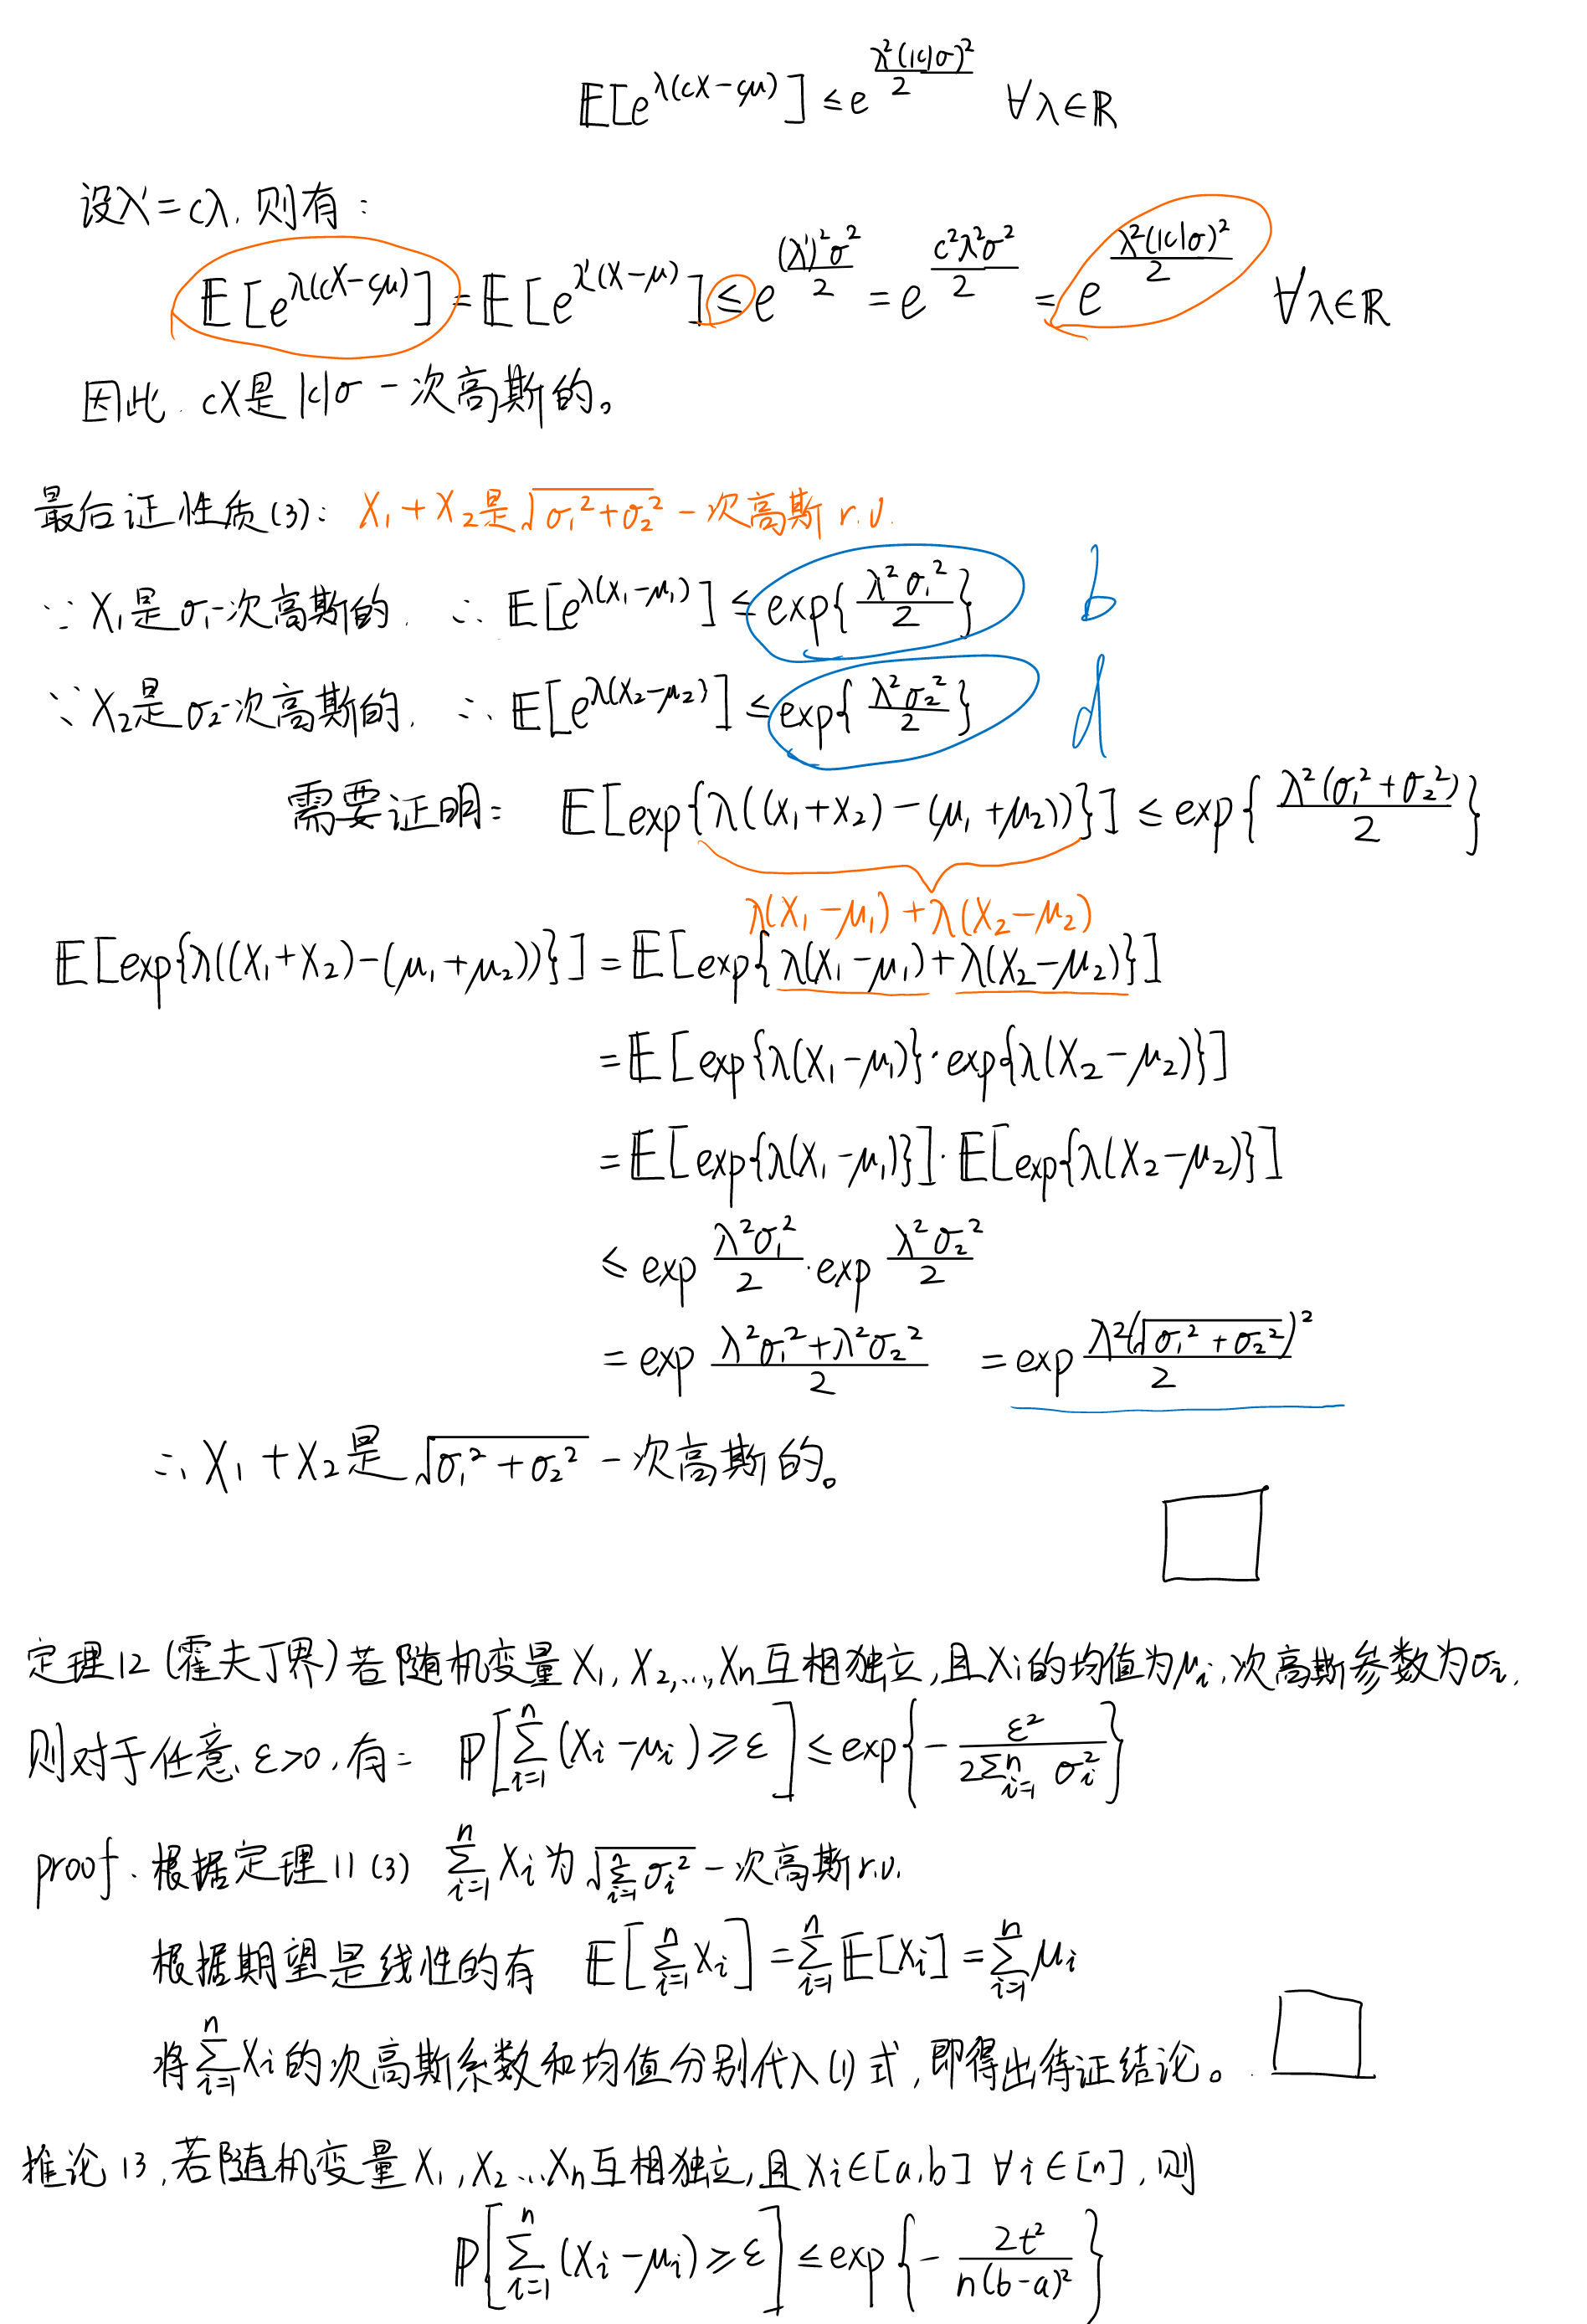 𝔼[e^{λ(cX-cμ)}] ≤ e^{\frac{λ²(|c|σ)²}{2}} ∀λ∈ℝ
设λ'=cλ, 则有:
𝔼[e^{λ(cX-cμ)}] = 𝔼[e^{λ'(X-μ)}] ≤ e^{\frac{(λ')²σ²}{2}} = e^{\frac{c²λ²σ²}{2}} = e^{\frac{λ²(|c|σ)²}{2}} ∀λ∈ℝ
因此. cX是|c|σ-次高斯的。
最后证性质(3): X₁+X₂是√(σ₁²+σ₂²)-次高斯 r.v.
∵ X₁是σ₁-次高斯的. ∴ 𝔼[e^{λ(X₁-μ₁)}] ≤ exp{\frac{λ²σ₁²}{2}} b
∵ X₂是σ₂-次高斯的. ∴ 𝔼[e^{λ(X₂-μ₂)}] ≤ exp{\frac{λ²σ₂²}{2}} d
需要证明: 𝔼[exp{λ((X₁+X₂)-(μ₁+μ₂))}] ≤ exp{\frac{λ²(σ₁²+σ₂²)}{2}}
λ(X₁-μ₁)+λ(X₂-μ₂)
𝔼[exp{λ((X₁+X₂)-(μ₁+μ₂))}] = 𝔼[exp{λ(X₁-μ₁)+λ(X₂-μ₂)}]
= 𝔼[exp{λ(X₁-μ₁)}·exp{λ(X₂-μ₂)}]
= 𝔼[exp{λ(X₁-μ₁)}]·𝔼[exp{λ(X₂-μ₂)}]
≤ exp \frac{λ²σ₁²}{2}·exp \frac{λ²σ₂²}{2}
= exp \frac{λ²σ₁²+λ²σ₂²}{2} = exp \frac{λ²(√(σ₁²+σ₂²))²}{2}
∴ X₁+X₂是√(σ₁²+σ₂²)-次高斯的。
定理12 (霍夫丁界) 若随机变量X₁, X₂,..., Xn互相独立,且Xi的均值为μi,次高斯参数为σi,
则对于任意 ε>0, 有: ℙ[∑_{i=1}^{n}(Xi-μi)≥ε] ≤ exp{-\frac{ε²}{2∑_{i=1}^{n} σ_i²}}
proof. 根据定理11(3) ∑_{i=1}^{n} Xi为√(∑_{i=1}^{n} σ_i²)-次高斯r.v.
根据期望是线性的有 𝔼[∑_{i=1}^{n} Xi] = ∑_{i=1}^{n} 𝔼[Xi] = ∑_{i=1}^{n} μi
将∑_{i=1}^{n} Xi的次高斯系数和均值分别代入(1)式,即得出待证结论。
推论13,若随机变量X₁,X₂...Xn互相独立,且Xi∈[a,b] ∀i∈[n],则
ℙ[∑_{i=1}^{n}(Xi-μi)≥ε] ≤ exp{-\frac{2t²}{n(b-a)²}}